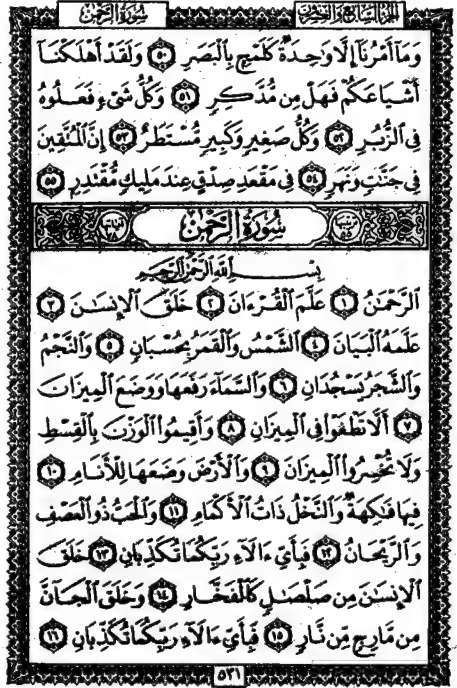 الجزء السابع والعشرون سُورَةُ الرَّحْمٰن
وَمَآ أَمْرُنَآ إِلَّا وَٰحِدَةٌ كَلَمْحٍۭ بِٱلْبَصَرِ ٥٠ وَلَقَدْ أَهْلَكْنَآ
أَشْيَاعَكُمْ فَهَلْ مِن مُّدَّكِرٍ ٥١ وَكُلُّ شَىْءٍ فَعَلُوهُ
فِى ٱلزُّبُرِ ٥٢ وَكُلُّ صَغِيرٍ وَكَبِيرٍ مُّسْتَطَرٌ ٥٣ إِنَّ ٱلْمُتَّقِينَ
فِى جَنَّٰتٍ وَنَهَرٍ ٥٤ فِى مَقْعَدِ صِدْقٍ عِندَ مَلِيكٍ مُّقْتَدِرٍۭ ٥٥
ترتيبها ٥٥ سُورَةُ الرَّحْمٰن آياتها ٧٨
بِسْمِ ٱللَّهِ ٱلرَّحْمَٰنِ ٱلرَّحِيمِ
ٱلرَّحْمَٰنُ ١ عَلَّمَ ٱلْقُرْءَانَ ٢ خَلَقَ ٱلْإِنسَٰنَ ٣
عَلَّمَهُ ٱلْبَيَانَ ٤ ٱلشَّمْسُ وَٱلْقَمَرُ بِحُسْبَانٍ ٥ وَٱلنَّجْمُ
وَٱلشَّجَرُ يَسْجُدَانِ ٦ وَٱلسَّمَآءَ رَفَعَهَا وَوَضَعَ ٱلْمِيزَانَ
٧ أَلَّا تَطْغَوْا۟ فِى ٱلْمِيزَانِ ٨ وَأَقِيمُوا۟ ٱلْوَزْنَ بِٱلْقِسْطِ
وَلَا تُخْسِرُوا۟ ٱلْمِيزَانَ ٩ وَٱلْأَرْضَ وَضَعَهَا لِلْأَنَامِ ١٠
فِيهَا فَٰكِهَةٌ وَٱلنَّخْلُ ذَاتُ ٱلْأَكْمَامِ ١١ وَٱلْحَبُّ ذُو ٱلْعَصْفِ
وَٱلرَّيْحَانُ ١٢ فَبِأَىِّ ءَالَآءِ رَبِّكُمَا تُكَذِّبَانِ ١٣ خَلَقَ
ٱلْإِنسَٰنَ مِن صَلْصَٰلٍ كَٱلْفَخَّارِ ١٤ وَخَلَقَ ٱلْجَآنَّ
مِن مَّارِجٍ مِّن نَّارٍ ١٥ فَبِأَىِّ ءَالَآءِ رَبِّكُمَا تُكَذِّبَانِ ١٦
٥٣١